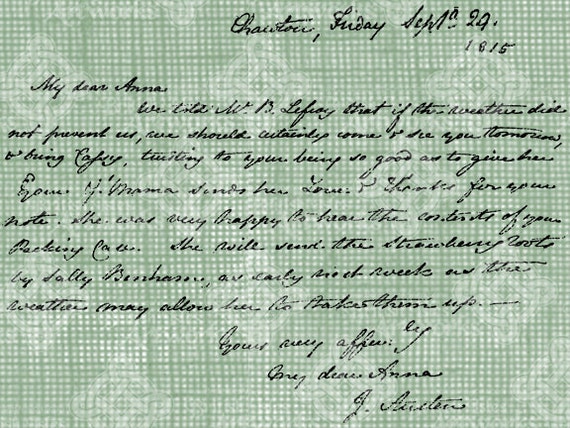 Chawton, Friday Sept. 29.
1815
My dear Anna
We told Mr. B. Lefroy that if the weather did
not prevent us, we should certainly come & see you tomorrow,
& bring Cassy, trusting to your being so good as to give her
Your G'Mama sends her Love & Thanks for your
note. She was very happy to hear the contents of your
Packing Case. She will send the Strawberry roots
by Sally Benham, as early next week as the
weather may allow her to take them up. —
Yours very affec:ly
my dear Anna
J. Austen